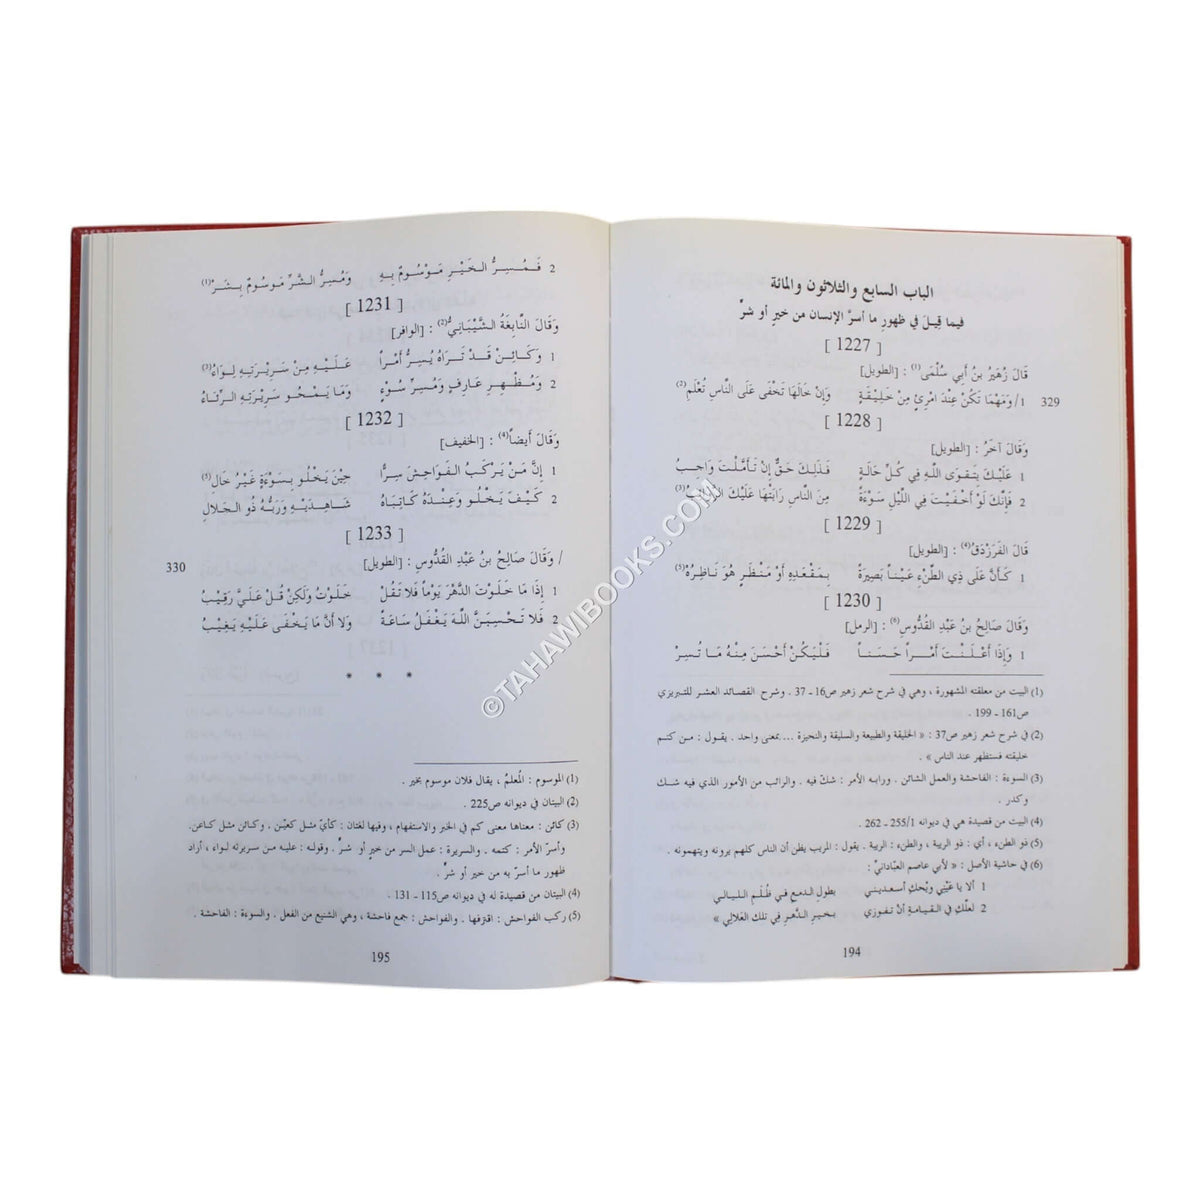 الباب السابع والثلاثون والمائة
فيما قِيلَ في ظهورِ ما أسرَّ الإنسان من خيرٍ أو شرٍّ
[ 1227 ]
قَالَ زُهَيرُ بنُ أَبِي سُلْمَى(1) : [الطويل]
329 1/ وَمَهْمَا تَكُنْ عِنْدَ امْرِئٍ مِنْ خَلِيْقَةٍ وَإِنْ خَالَهَا تَخْفَى عَلَى النَّاسِ تُعْلَمِ(2)
[ 1228 ]
وَقَالَ آخَرُ : [الطويل]
1 عَلَيْكَ بِتَقوَى اللهِ فِي كُلِّ حَالَةٍ فَذلِكَ حَقٌّ إِنْ تَأَمَّلْتَ وَاجِبُ
2 فَإِنَّكَ لَوْ أَخْفَيْتَ فِي اللَّيْلِ سَوْءَةً مِنَ النَّاسِ رَابَتْهَا عَلَيْكَ (3)
[ 1229 ]
قَالَ الفَرَزْدَقُ(4) : [الطويل]
1 كَأَنَّ عَلَى ذِي الطِّنْءِ عَيْناً بَصِيرَةً بِمَقْعَدِهِ أَوْ مَنْظَرٍ هُوَ نَاظِرُهْ(5)
[ 1230 ]
وَقَالَ صَالِحُ بنُ عَبْدِ القُدُّوسِ(6) : [الرمل]
1 وَإِذَا أَعْلَنْتَ أَمْراً حَسَناً فَلْيَكُنْ أَحْسَنَ مِنْهُ مَا تُسِرّْ
(1) البيت من معلقته المشهورة ، وهي في شرح شعر زهير ص16 - 37 . وشرح القصائد العشر للتبريزي
ص161 - 199 .
(2) في شرح شعر زهير ص37 : « الخليقة والطبيعة والسليقة والنحيزة ....بمعنى واحد . يقول : من كتم
خليقته فستظهر عند الناس » .
(3) السوءة : الفاحشة والعمل الشائن . ورابه الأمر : شكّ فيه . والرائب من الأمور الذي فيه شك
وكدر .
(4) البيت من قصيدة هي في ديوانه 255/1 - 262 .
(5) ذو الطنء ، أي : ذو الريبة ، والطنء : الريبة . يقول : المريب يظن أن الناس كلهم يرونه ويتهمونه .
(6) في حاشية الأصل : « لأبي عاصم العبَّادانيِّ :
1 ألا يا عَيْنِي ويْحَكِ أسعديني بطولِ الدمعِ في ظُلَمِ الليالي
2 لعلّكِ في القيامةِ أنْ تفوزي بخيرِ الدَّهرِ في تلك العَلالِي »
194
2 فَمُسِرُّ الخَيْرِ مَوْسُومٌ بِهِ وَمُسِرُّ الشَّرِّ مَوسُومٌ بِشَرّْ(1)
[ 1231 ]
وَقَالَ النَّابِغَةُ الشَّيْبَانِيُّ(2) : [الوافر]
1 وَكَائِنْ قَدْ تَرَاهُ يُسِرُّ أَمْراً عَلَيْهِ مِنْ سَرِيْرَتِهِ لِوَاءُ(3)
2 وَمُظْهِرِ عَارِفٍ وَمُسِرِّ سُوْءٍ وَمَا يَمْحُو سَرِيْرَتَهِ الرِّئَاءُ
[ 1232 ]
وَقَالَ أَيضاً(4) : [الخفيف]
1 إِنَّ مَنْ يَرْكَبُ الفَوَاحِشَ سِرًّا حِيْنَ يَخْلُو بِسَوْءَةٍ غَيْرُ خَالِ(5)
2 كَيْفَ يَخْلُو وَعِنْدَهُ كَاتِبَاهُ شَاهِدَيْهِ وَرَبُّهُ ذُو الجَلالِ
[ 1233 ]
330 / وَقَالَ صَالِحُ بنُ عَبْدِ القُدُّوسِ : [الطويل]
1 إِذَا مَا خَلَوْتَ الدَّهْرَ يَوْماً فَلا تَقُلْ خَلَوْتُ وَلَكِنْ قُلْ عَلَيَّ رَقِيْبُ
2 فَلا تَحْسِبَنَّ اللَّهَ يَغْفَلُ سَاعَةً وَلا أَنَّ مَا يَخْفَى عَلَيْهِ يَغِيْبُ
* * *
(1) الموسوم : المُعلمُ ، يقال فلان موسوم بخير .
(2) البيتان في ديوانه ص225 .
(3) كائن : معناها معنى كم في الخبر والاستفهام ، وفيها لغتان : كأيّ مثل كعيّن ، وكائن مثل كاعن.
وأسرّ الأمر : كتمه . والسريرة : عمل السر من خيرٍ أو شرٍّ . وقوله : عليه من سريرته لواء ، أراد
ظهور ما أسرّ به من خير أو شرٍّ .
(4) البيتان من قصيدة له في ديوانه ص115 - 131 .
(5) ركب الفواحش : اقترفها . والفواحش : جمع فاحشة ، وهي الشنيع من الفعل . والسوءة : الفاحشة .
195
©TAHAWIBOOKS.COM